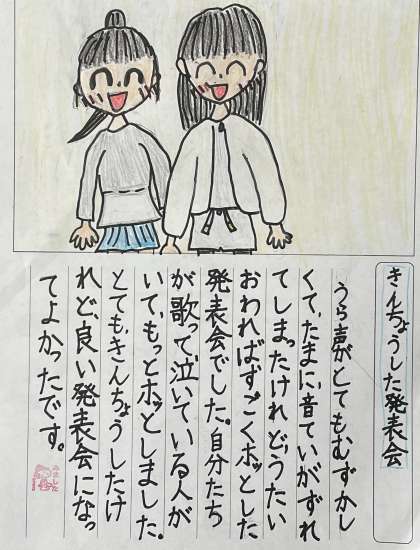 きんちょうした発表会
うら声がとてもむずかし
くて、たまに、音ていがずれ
てしまったけれど、うたい
おわればすごくホッとした
発表会でした。自分たち
が歌って泣いている人が
いて、もっとホッとしました。
とても、きんちょうしたけ
れど、良い発表会になっ
てよかったです。
みました